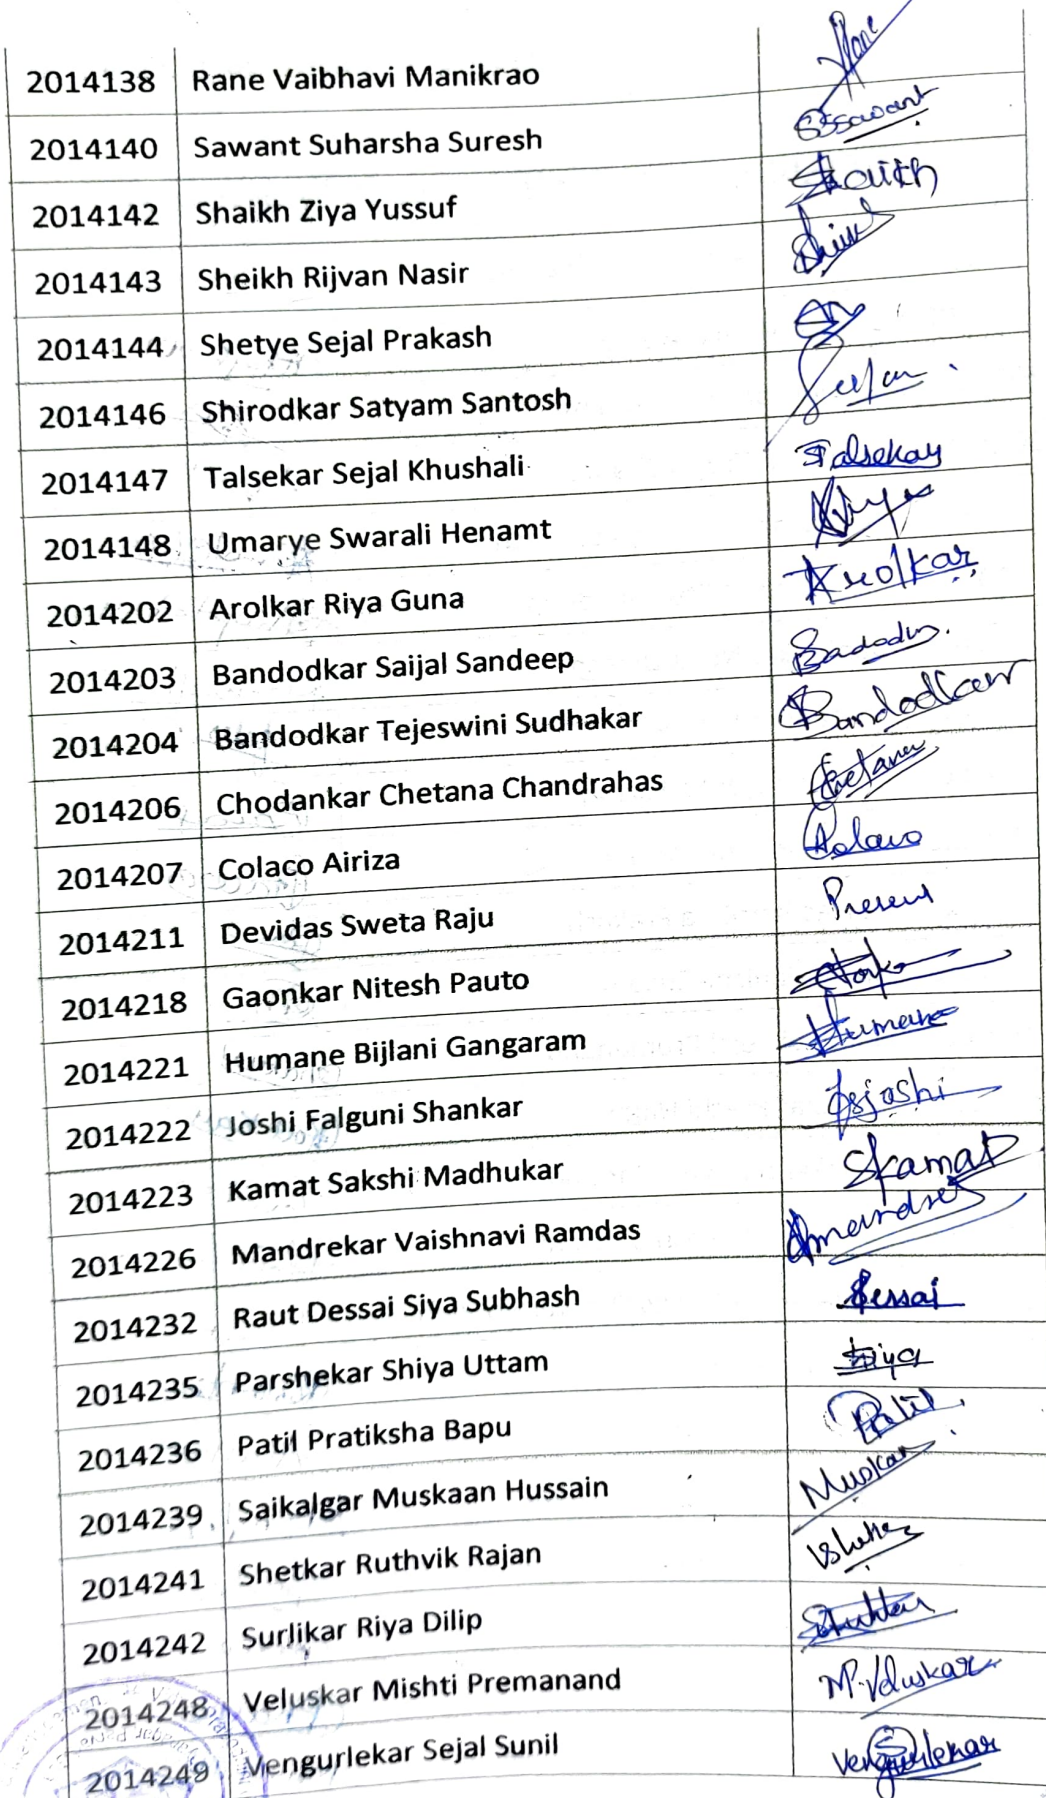 2014138 Rane Vaibhavi Manikrao
2014140 Sawant Suharsha Suresh SSsawant
2014142 Shaikh Ziya Yussuf Shaikh
2014143 Sheikh Rijvan Nasir
2014144 Shetye Sejal Prakash
2014146 Shirodkar Satyam Santosh
2014147 Talsekar Sejal Khushali Talsekar
2014148 Umarye Swarali Henamt
2014202 Arolkar Riya Guna Arolkar
2014203 Bandodkar Saijal Sandeep
2014204 Bandodkar Tejeswini Sudhakar Bandodkar
2014206 Chodankar Chetana Chandrahas Chetana
2014207 Colaco Airiza Colaco
2014211 Devidas Sweta Raju Present
2014218 Gaonkar Nitesh Pauto
2014221 Humane Bijlani Gangaram Humane
2014222 Joshi Falguni Shankar Fsjoshi
2014223 Kamat Sakshi Madhukar Skamat
2014226 Mandrekar Vaishnavi Ramdas
2014232 Raut Dessai Siya Subhash Dessai
2014235 Parshekar Shiya Uttam
2014236 Patil Pratiksha Bapu Patil
2014239 Saikalgar Muskaan Hussain Muskan
2014241 Shetkar Ruthvik Rajan
2014242 Surlikar Riya Dilip
2014248 Veluskar Mishti Premanand M.Veluskar
2014249 Vengurlekar Sejal Sunil Vengurlekar